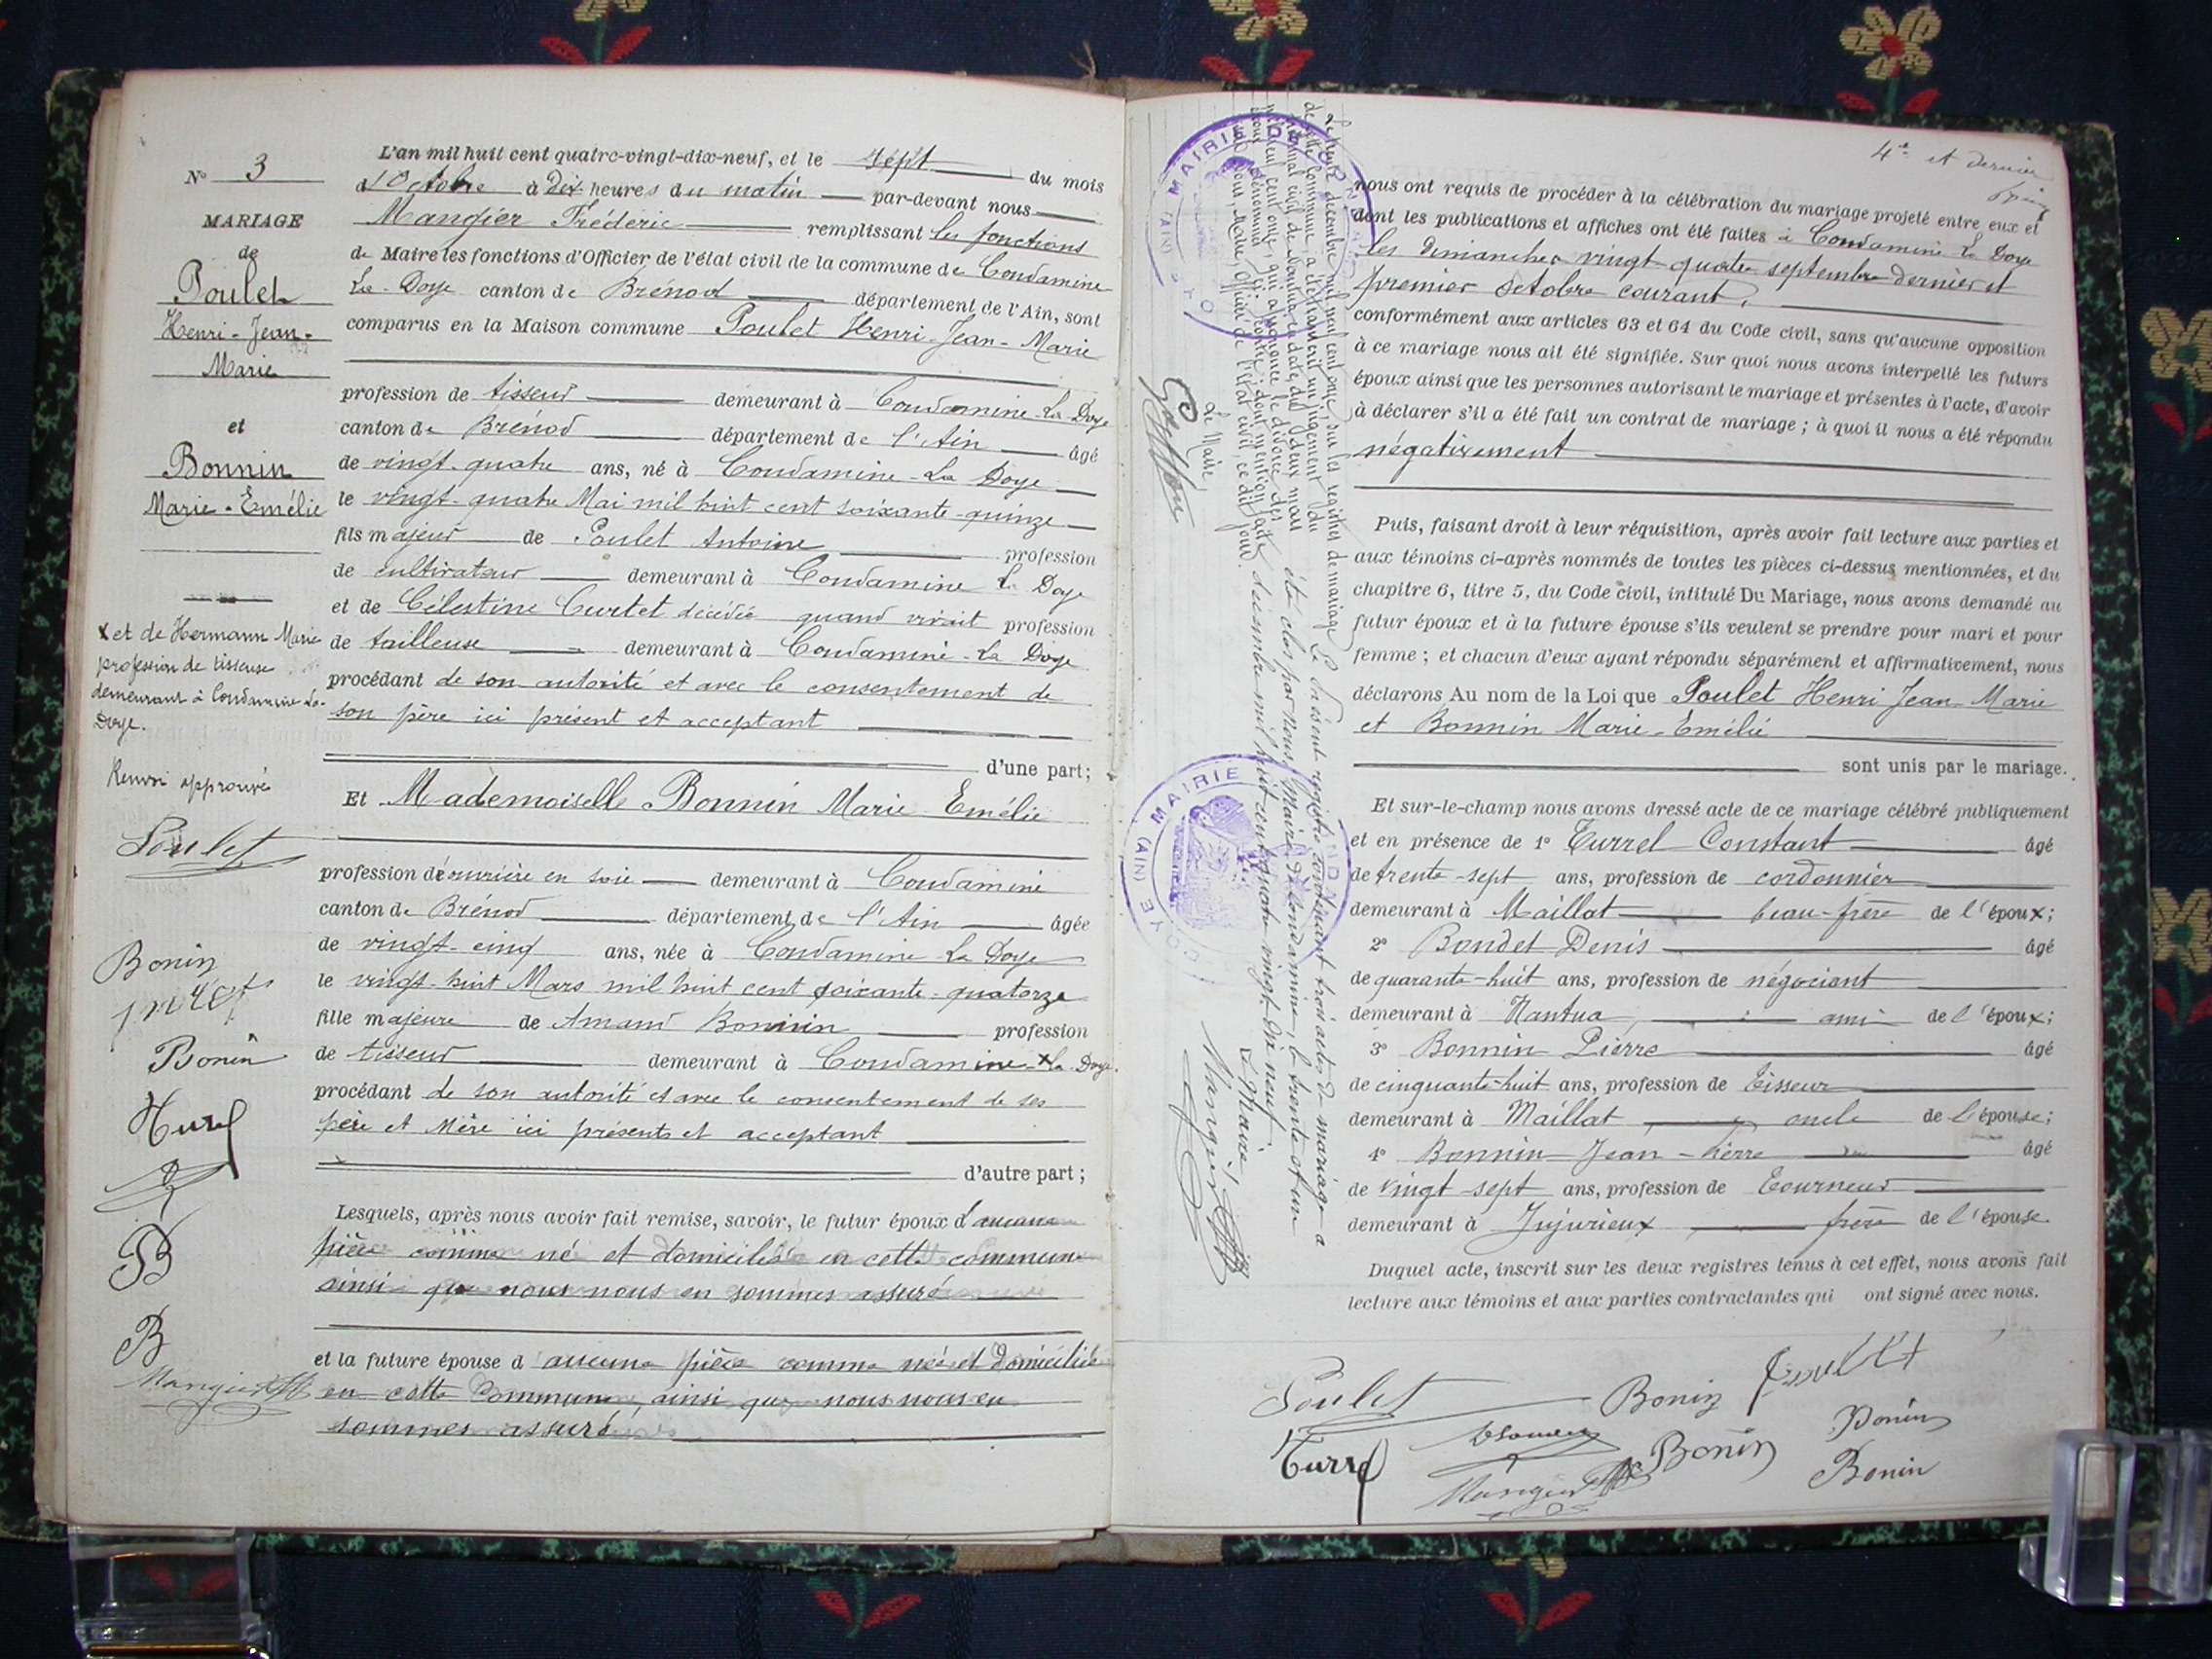 N° 3
MARIAGE
de
Poulet
Henri-Jean-
Marie
et
Bonnin
Marie-Emélie
x et de Hermann Marie
profession de tisseuse
demeurant à Condamine La-
Doye.
Renvoi approuvé
Poulet
Bonin
Bonin
Turrel
B
B
Mangier
L'an mil huit cent quatre-vingt-dix-neuf, et le sept du mois
d'Octobre à dix heures du matin par-devant nous
Mangier Fréderic remplissant les fonctions
de Maire les fonctions d'Officier de l'état civil de la commune de Condamine
La-Doye canton de Brénod département de l'Ain, sont
comparus en la Maison commune Poulet Henri-Jean-Marie
profession de tisseur demeurant à Condamine-La-Doye
canton de Brénod département de l'Ain âgé
de vingt-quatre ans, né à Condamine-La Doye
le vingt-quatre Mai mil huit cent soixante-quinze
fils majeur de Poulet Antoine profession
de cultivateur demeurant à Condamine La Doye
et de Célestine Curtet décédée quand vivait profession
de tailleuse demeurant à Condamine-La Doye
procédant de son autorité et avec le consentement de
son père ici présent et acceptant
d'une part;
Et Mademoiselle Bonnin Marie Emélie
profession d'ouvrière en soie demeurant à Condamine
canton de Brénod département de l'Ain âgée
de vingt-cinq ans, née à Condamine-La Doye
le vingt-huit Mars mil huit cent soixante-quatorze
fille majeure de Amand Bonnin profession
de tisseur demeurant à Condamine x La Doye.
procédant de son autorité et avec le consentement de ses
père et Mère ici présents et acceptant
d'autre part;
Lesquels, après nous avoir fait remise, savoir, le futur époux d'aucune
pièce comme né et domicilié en cette commune
ainsi que nous nous en sommes assuré
et la future épouse d'aucune pièce comme née et domiciliée
en cette Commune, ainsi que nous nous en
sommes assuré
4e et dernier
nous ont requis de procéder à la célébration du mariage projeté entre eux et
dont les publications et affiches ont été faites à Condamine La Doye
les dimanches vingt quatre septembre dernier et
premier Octobre courant,
conformément aux articles 63 et 64 du Code civil, sans qu'aucune opposition
à ce mariage nous ait été signifiée. Sur quoi nous avons interpellé les futurs
époux ainsi que les personnes autorisant le mariage et présentes à l'acte, d'avoir
à déclarer s'il a été fait un contrat de mariage; à quoi il nous a été répondu
négativement
Puis, faisant droit à leur réquisition, après avoir fait lecture aux parties et
aux témoins ci-après nommés de toutes les pièces ci-dessus mentionnées, et du
chapitre 6, titre 5, du Code civil, intitulé Du Mariage, nous avons demandé au
futur époux et à la future épouse s'ils veulent se prendre pour mari et pour
femme; et chacun d'eux ayant répondu séparément et affirmativement, nous
déclarons Au nom de la Loi que Poulet Henri Jean-Marie
et Bonnin Marie-Emélie
sont unis par le mariage.
Et sur-le-champ nous avons dressé acte de ce mariage célébré publiquement
et en présence de 1° Turrel Constant âgé
de trente-sept ans, profession de cordonnier
demeurant à Maillat beau-frère de l'époux;
2° Bondet Denis âgé
de quarante-huit ans, profession de négociant
demeurant à Nantua, ami de l'époux;
3° Bonnin Pierre âgé
de cinquante-huit ans, profession de Tisseur
demeurant à Maillat, oncle de l'épouse;
4° Bonnin Jean-Pierre âgé
de vingt-sept ans, profession de Tourneur
demeurant à Jujurieux frère de l'épouse
Duquel acte, inscrit sur les deux registres tenus à cet effet, nous avons fait
lecture aux témoins et aux parties contractantes qui ont signé avec nous.
Poulet Bonin Poulet
Turrel Bonin Bonin
Mangier Bonin
Le trente décembre mil neuf cent onze, sur les registres de mariage
de cette Commune a été transcrit un jugement du
tribunal civil de Nantua en date du deux mars
mil neuf cent onze, qui a prononcé le divorce des
époux dénommés ci-contre; dont mention faite
par nous, Maire officier de l'état civil, ce dit jour.
Le Maire,
Le présent registre contenant trois actes de mariage a
été clos par nous, Maire de Condamine, le trente et un
décembre mil huit cent quatre vingt dix neuf.
Le Maire,
Mangier
MAIRIE DE CONDAMINE
DOYE (AIN)
MAIRIE
DOYE (AIN)